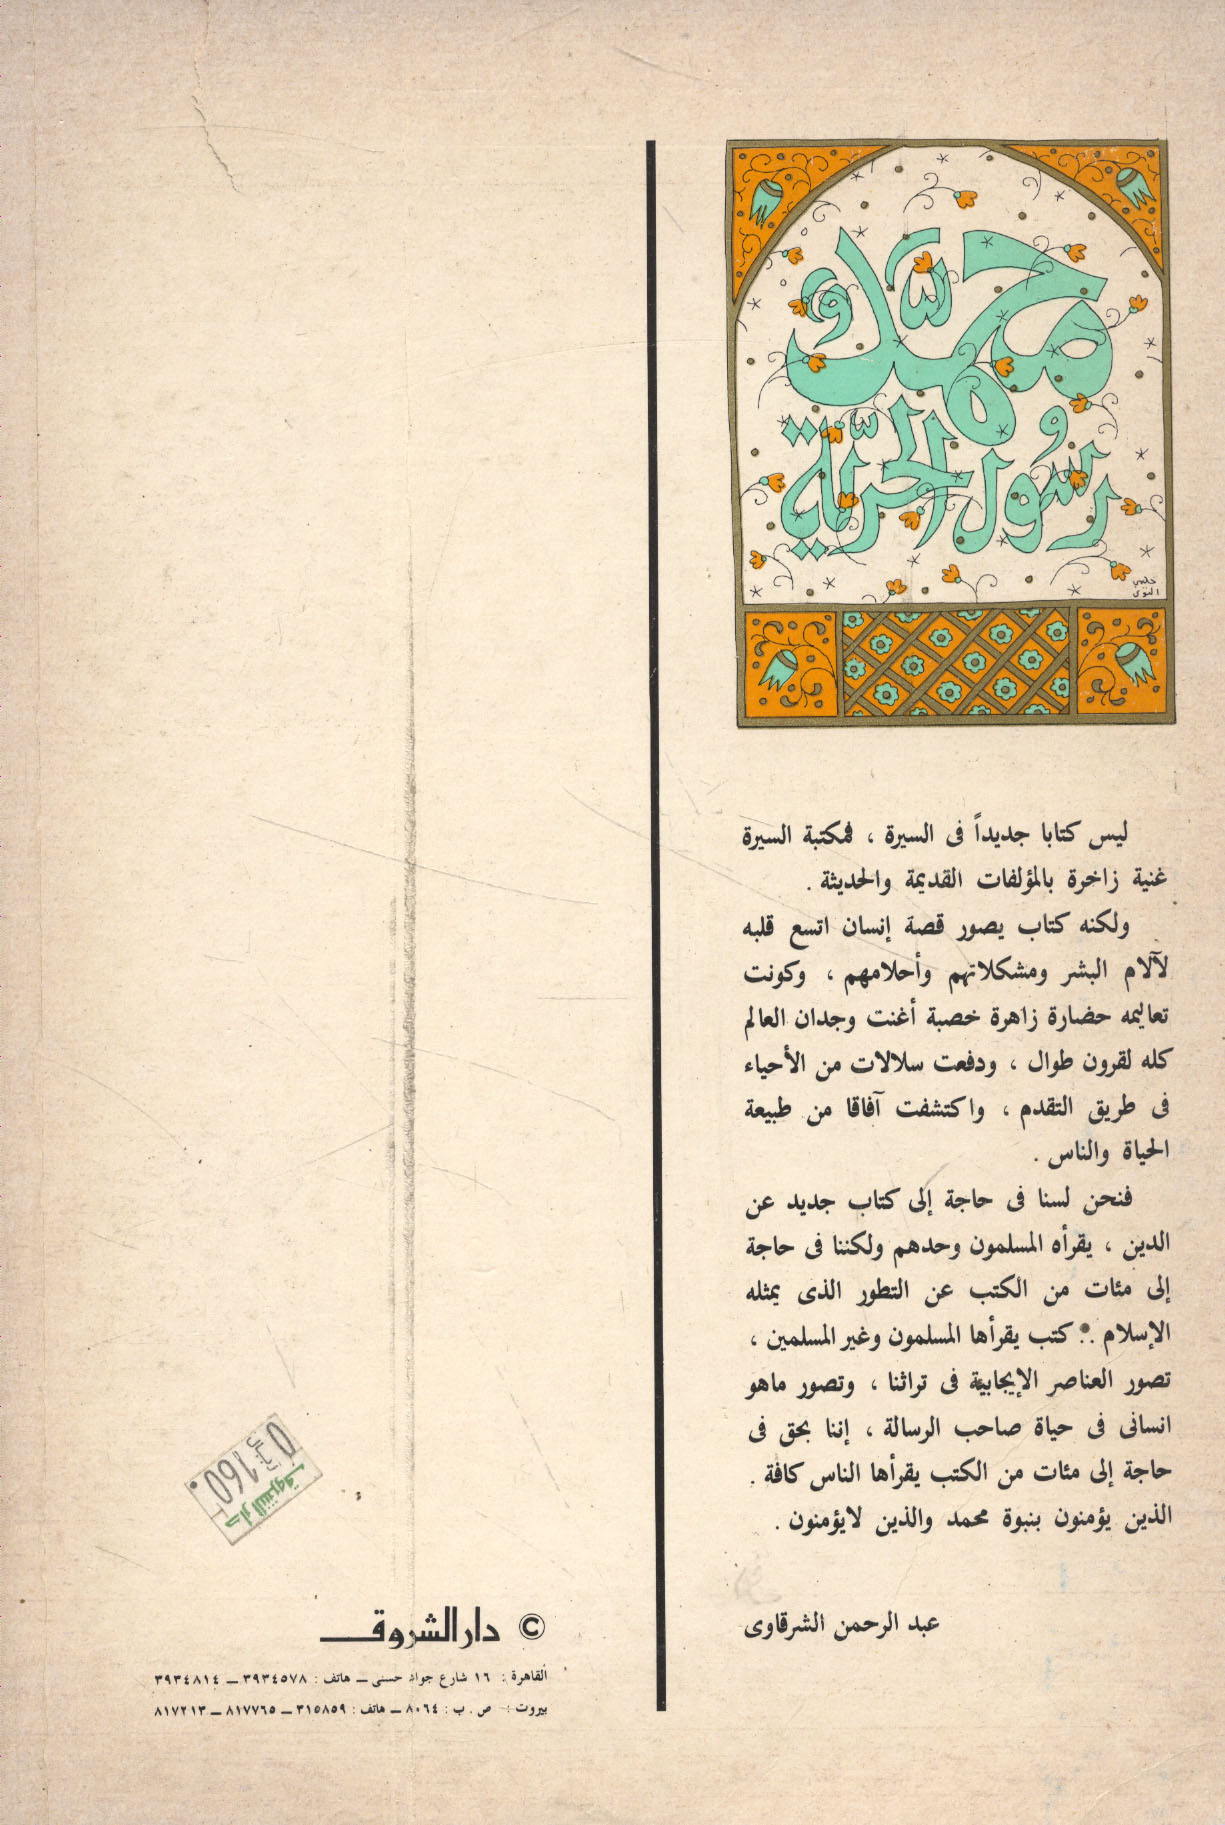 محمد
رسول الحرية
حلمي
التوني
ليس كتابا جديداً فى السيرة ، فمكتبة السيرة
غنية زاخرة بالمؤلفات القديمة والحديثة .
ولكنه كتاب يصور قصة إنسان اتسع قلبه
لآلام البشر ومشكلاتهم وأحلامهم ، وكونت
تعاليمه حضارة زاهرة خصبة أغنت وجدان العالم
كله لقرون طوال ، ودفعت سلالات من الأحياء
فى طريق التقدم ، واكتشفت آفاقا من طبيعة
الحياة والناس .
فنحن لسنا فى حاجة إلى كتاب جديد عن
الدين ، يقرأه المسلمون وحدهم ولكننا فى حاجة
إلى مئات من الكتب عن التطور الذى يمثله
الإسلام .. كتب يقرأها المسلمون وغير المسلمين ،
تصور العناصر الإيجابية فى تراثنا ، وتصور ماهو
انسانى فى حياة صاحب الرسالة ، إننا بحق فى
حاجة إلى مئات من الكتب يقرأها الناس كافة .
الذين يؤمنون بنبوة محمد والذين لايؤمنون .
عبد الرحمن الشرقاوى
دار الشروق
© دار الشروق
القاهرة : ١٦ شارع جواد حسنى ــ هاتف : ٣٩٣٤٥٧٨ ــ ٣٩٣٤٨١٤
بيروت : ص . ب : ٨٠٦٤ ــ هاتف : ٣١٥٨٥٩ ــ ٨١٧٧٦٥ ــ ٨١٧٢١٣